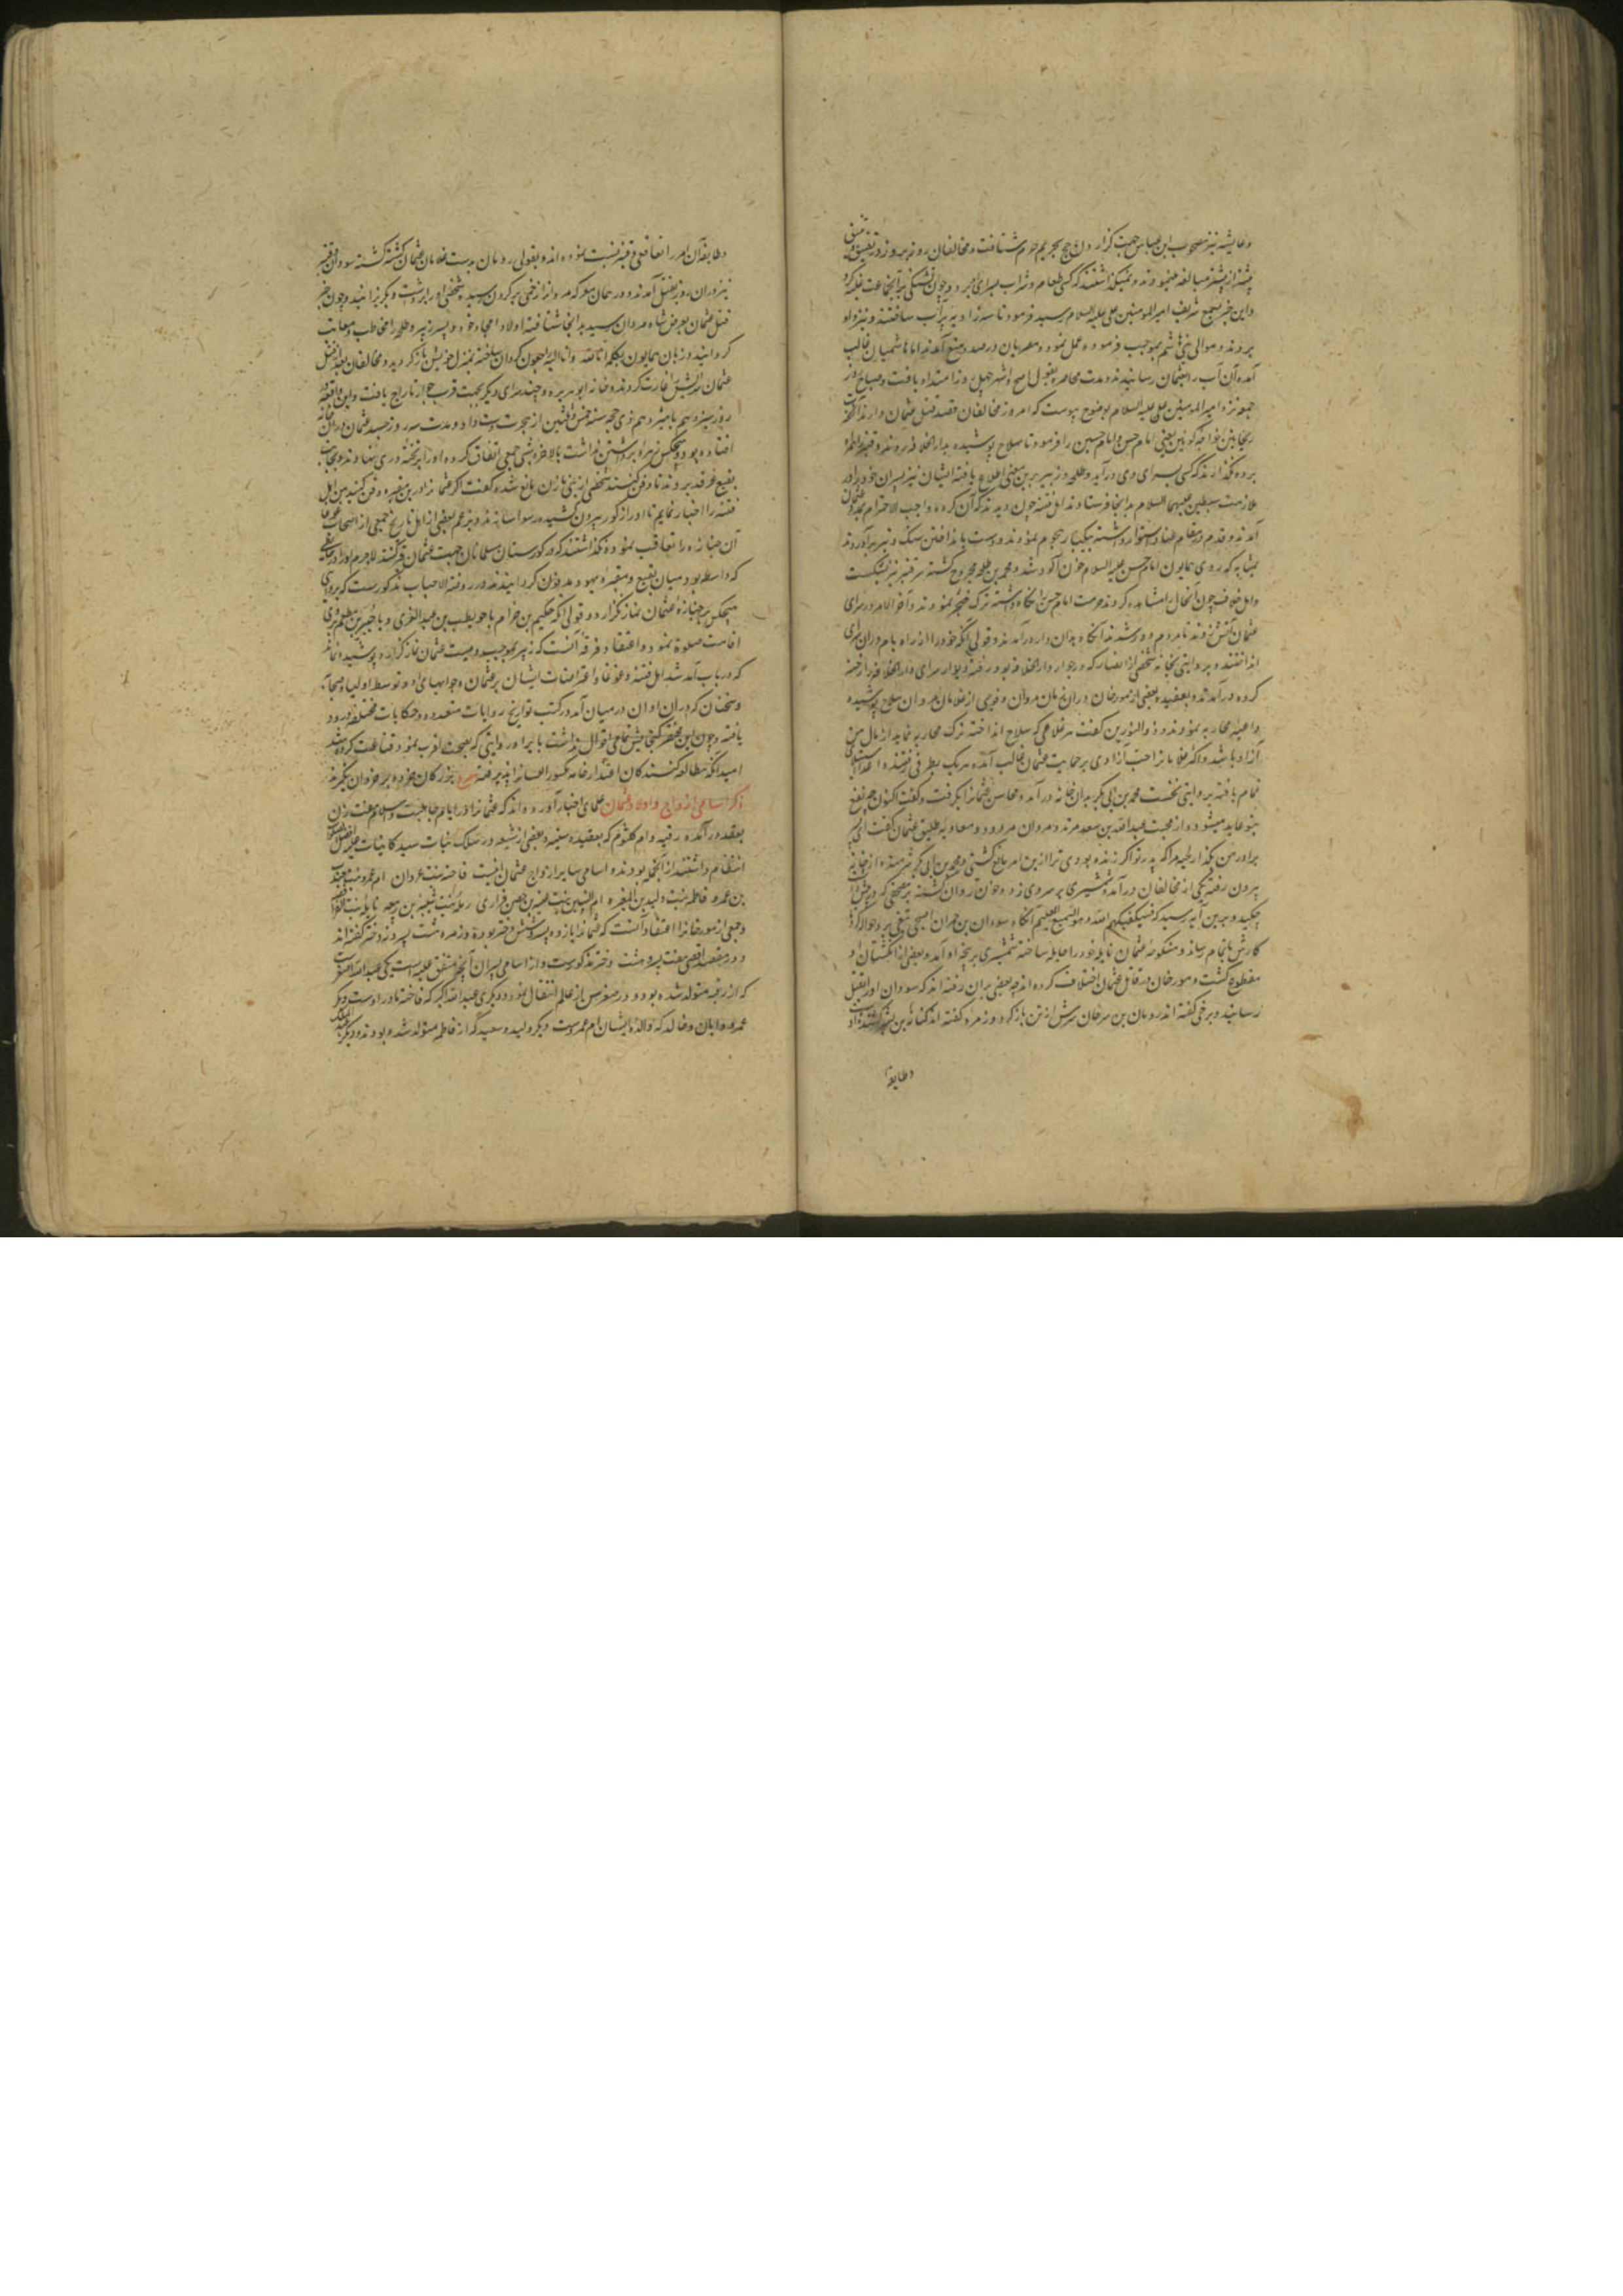 وعایشه نیز مصحوب ابن عباس جهت گزاردن حج بحریم حرم شتافت ومخالفان روز بروز در تضییق
پیشتر از پیشتر مبالغه مینمودند ونمیگذاشتند که کسی طعام وشراب بسرای برد وچون تشنگی برآن جماعت غلبه کرد
واین خبر بسمع شریف امیرالمومنین علی علیه السلام رسید فرمود تا سه راویه پرآب ساختند ونزد او
بردند وموالی بنی هاشم بموجب فرموده عمل نمودند ومصریان درصدد منع آمدند اما هاشمیان غالب
آمده آن آب را بعثمان رسانیدند ومدت محاصره بقول اصح واشهر چهل روز امتداد یافت وصباح روز
جمعه نزد امیرالمومنین علی علیه السلام بوضوح پیوست که امروز مخالفان قصد قتل عثمان دارند
ریحانتین خواجه کونین یعنی امام حسن وامام حسین را فرمود تا سلاح پوشیده بدارالخلافه روند وقنبر را همراه
برده نگذارند که کسی بسرای وی درآید وطلحه وزبیر برین معنی اطلاع یافته ایشان نیز پسران خود را در
ملازمت سبطین علیهما السلام بدانجا فرستادند اهل فتنه چون دیدند که آن گروه واجب الاحترام
آمدند وقدم در مقام عناد استوار داشته بیکبار هجوم نمودند ودست بانداختن سنگ وتیر برآوردند
بمثابه که روی همایون امام حسن علیه السلام خون آلود شد ومحمد بن طلحه مجروح گشته سر قنبر نیز بشکست
واهل خلاف چون آنحال را مشاهده کردند حرمت امام حسن را نگاه داشته ترک نمودند وآخر الامر در سرای
عثمان آتش زدند تا مردم دور شدند آنگاه بدان دار درآمدند وقولی آنکه خود را از راه بام دران سرای
انداختند وبروایتی بخانه شخصی از انصار که در جوار دارالخلافه بود رفته ودیوار سرای دارالخلافه را رخنه
کرده درآمدند وبعقیده بعضی از مورخان دران زمان مروان وفوجی از غلامان مروان سلاح پوشیده
داعیه محاربه نمودند وذوالنورین گفت هر غلامی که سلاح انداخته ترک محاربه نماید از مال من
آزاد باشد وآن غلامانرا حب آزادی بر حمایت عثمان غالب آمده هریک بطرفی رفتند
تمام یافته بروایتی نخست محمد بن ابی بکر بدان خانه درآمد ومحاسن عثمانرا بگرفت وگفت اکنون چه نفع
بتو عاید میشود از محبت عبدالله بن سعد مرتد ومروان مردود ومعاویه طلیق عثمان گفت ای پسر
برادر من بگذار لحیه مرا که پدر تو اگر زنده بودی ترا ازین امر مانع گشتی ومحمد بن ابی بکر شرمنده از خانه
بیرون رفته یکی از مخالفان درآمد وشمشیری بر سر وی زد وخون روان گشته بر مصحفی که در پیش
چکید وبرین آیه رسید که فسیکفیکهم الله وهو السمیع العلیم آنگاه سودان بن حمران اصبحی تیغی برو حواله کرد تا
کارش باتمام رساند ومنکوحه عثمان نایله خود را حایل ساخته شمشیری بر پنجه او آمد وبعضی از انگشتان او
مقطوع گشت ومورخان در قاتل عثمان اختلاف کرده اند چه بعضی بران رفته اند که سودان اورا بقتل
رسانید وبرخی گفته اند رومان بن سرحان سرش از تن باز کرد وزمره گفته اند کنانه بن بشر
وطایفه
وطایفه آن امر را بغافقی وقتیره نسبت نموده اند وبقولی رومان بدست غلامان عثمان کشته گشته سودان وقتیره
نیز دران روز بقتل آمدند ودر همان معرکه مروانرا زخمی بر گردن رسید وشخصی او را بر پشت وبکریزانید وچون خبر
قتل عثمان بعرض شاه مردان رسید بدانجا شتافته اولاد امجاد خود وپسر زبیر وطلحه را مخاطب ومعاتب
گردانید وزبان همایون بکلمه انا لله وانا الیه راجعون گردان ساخته بمنزل خویش بازگردید ومخالفان بعد از قتل
عثمان سرایش را غارت کردند وخانه ابوهریره وچند سرای دیگر بجهت قرب جوار تاراج یافت واین واقعه در
روز سیزدهم یا هیزدهم ذی حجه سنه خمس وثلثین از هجرت دست داد ومدت سه روز جسد عثمان دران خانه
افتاده بود وهیچکس زهره برداشتن نداشت بالاخره شبی جمعی اتفاق کرده او را بر تخته دری نهادند وبجانب
بقیع غرقد بردند تا دفن کنند شخصی از بنی مازن مانع شده گفت اگر عثمانرا درین مقبره دفن کنید من اهل
فتنه را اخبار نمایم تا او را از گور بیرون کشیده رسوا سازند وبزعم بعضی از اهل تاریخ جمعی از اصحاب غوغا
آن جنازه را تعاقب نموده نگذاشتند که در گورستان مسلمانان جهت عثمان قبر کنند لاجرم او را در موضعی
که واسطه بود میان بقیع ومقبره یهود مدفون گردانیدند ودر روضة الاحباب مذکورست که بروایتی
هیچکس بر جنازه عثمان نماز نگزارد وقولی آنکه حکیم بن حزام یا حویطب بن عبدالعزی ویا جبیر بن مطعم بروی
اقامت صلوة نمود واعتقاد فرقه آنست که زبیر بموجب وصیت عثمان نماز گزارد پوشیده نماند
که در باب آمد شد اهل فتنه وغوغا واعتراضات ایشان بر عثمان وجوابهای او وتوسط اولیاء صحابه
وسخنان که دران اوان درمیان آمد در کتب تواریخ روایات متعدده وحکایات مختلفه ورود
یافته وچون این مختصر گنجایش تمامی اقوال نداشت بایراد روایتی که بصحت اقرب نمود قناعت کرده شد
امید آنکه مطالعه کنندگان اعتذار خامه مکسور اللسانرا پذیرفته مصرع بزرگان خرده بر خردان نگیرند
ذکر اسامی ازواج واولاد عثمان علمای اخبار آورده اند که عثمانرا در ایام جاهلیت واسلام هشت زن
بعقد درآمده رقیه وام کلثوم که بعقیده سنیه وبعضی از شیعه در سلک بنات سید کاینات علیه افضل الصلوات
انتظام داشتند از آنجمله بودند واسامی سایر ازواج عثمان اینست فاخته بنت غزوان ام عمرو بنت جندب
بن عمرو فاطمه بنت ولید بن المغیره ام البنین بنت عیینه بن حصن فزاری رمله بنت شیبه بن ربیعه نایله بنت الفرافصه
وجمعی از مورخانرا اعتقاد آنست که عثمانرا یازده پسر وشش دختر بوده وزمره هشت پسر ونه دختر گفته اند
ودر مقصد اقصی هفت پسر وهشت دختر مذکورست واز اسامی پسران آنچه متفق علیه است یکی عبدالله اصغرست
که از رقیه متولد شده بود ودر صغر سن از عالم انتقال نمود ودیگری عبدالله اکبر که فاخته مادر اوست ودیگر
عمرو وابان وخالد که والده ایشان ام عمروست ودیگر ولید وسعید که از فاطمه متولد شده بودند ودیگر عبدالملک